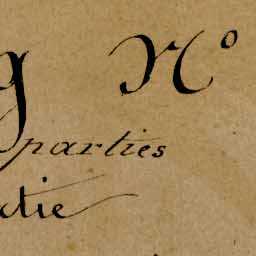 g N°
parties
ctie